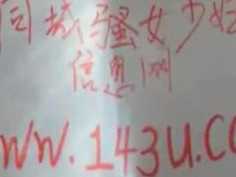 同城骚女少妇
信息网
WW.143U.CC